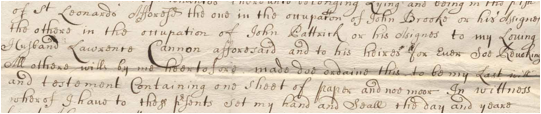 lying and being in the
of St Leonards afforesd the one in the occupation of John Brooke or his assignes
the others in the occupation of John Pattrick or his assignes to my Loving
Husband Lawrence Cannon afforesaid and to his heires for Ever Soe Revoking
All others wills by me heertofore made doe ordaine this to be my Last will
and testement Containing one Sheet of paper and noe moor In wittness
wherof I have to thes psents Set my hand and Seale the day and yeare